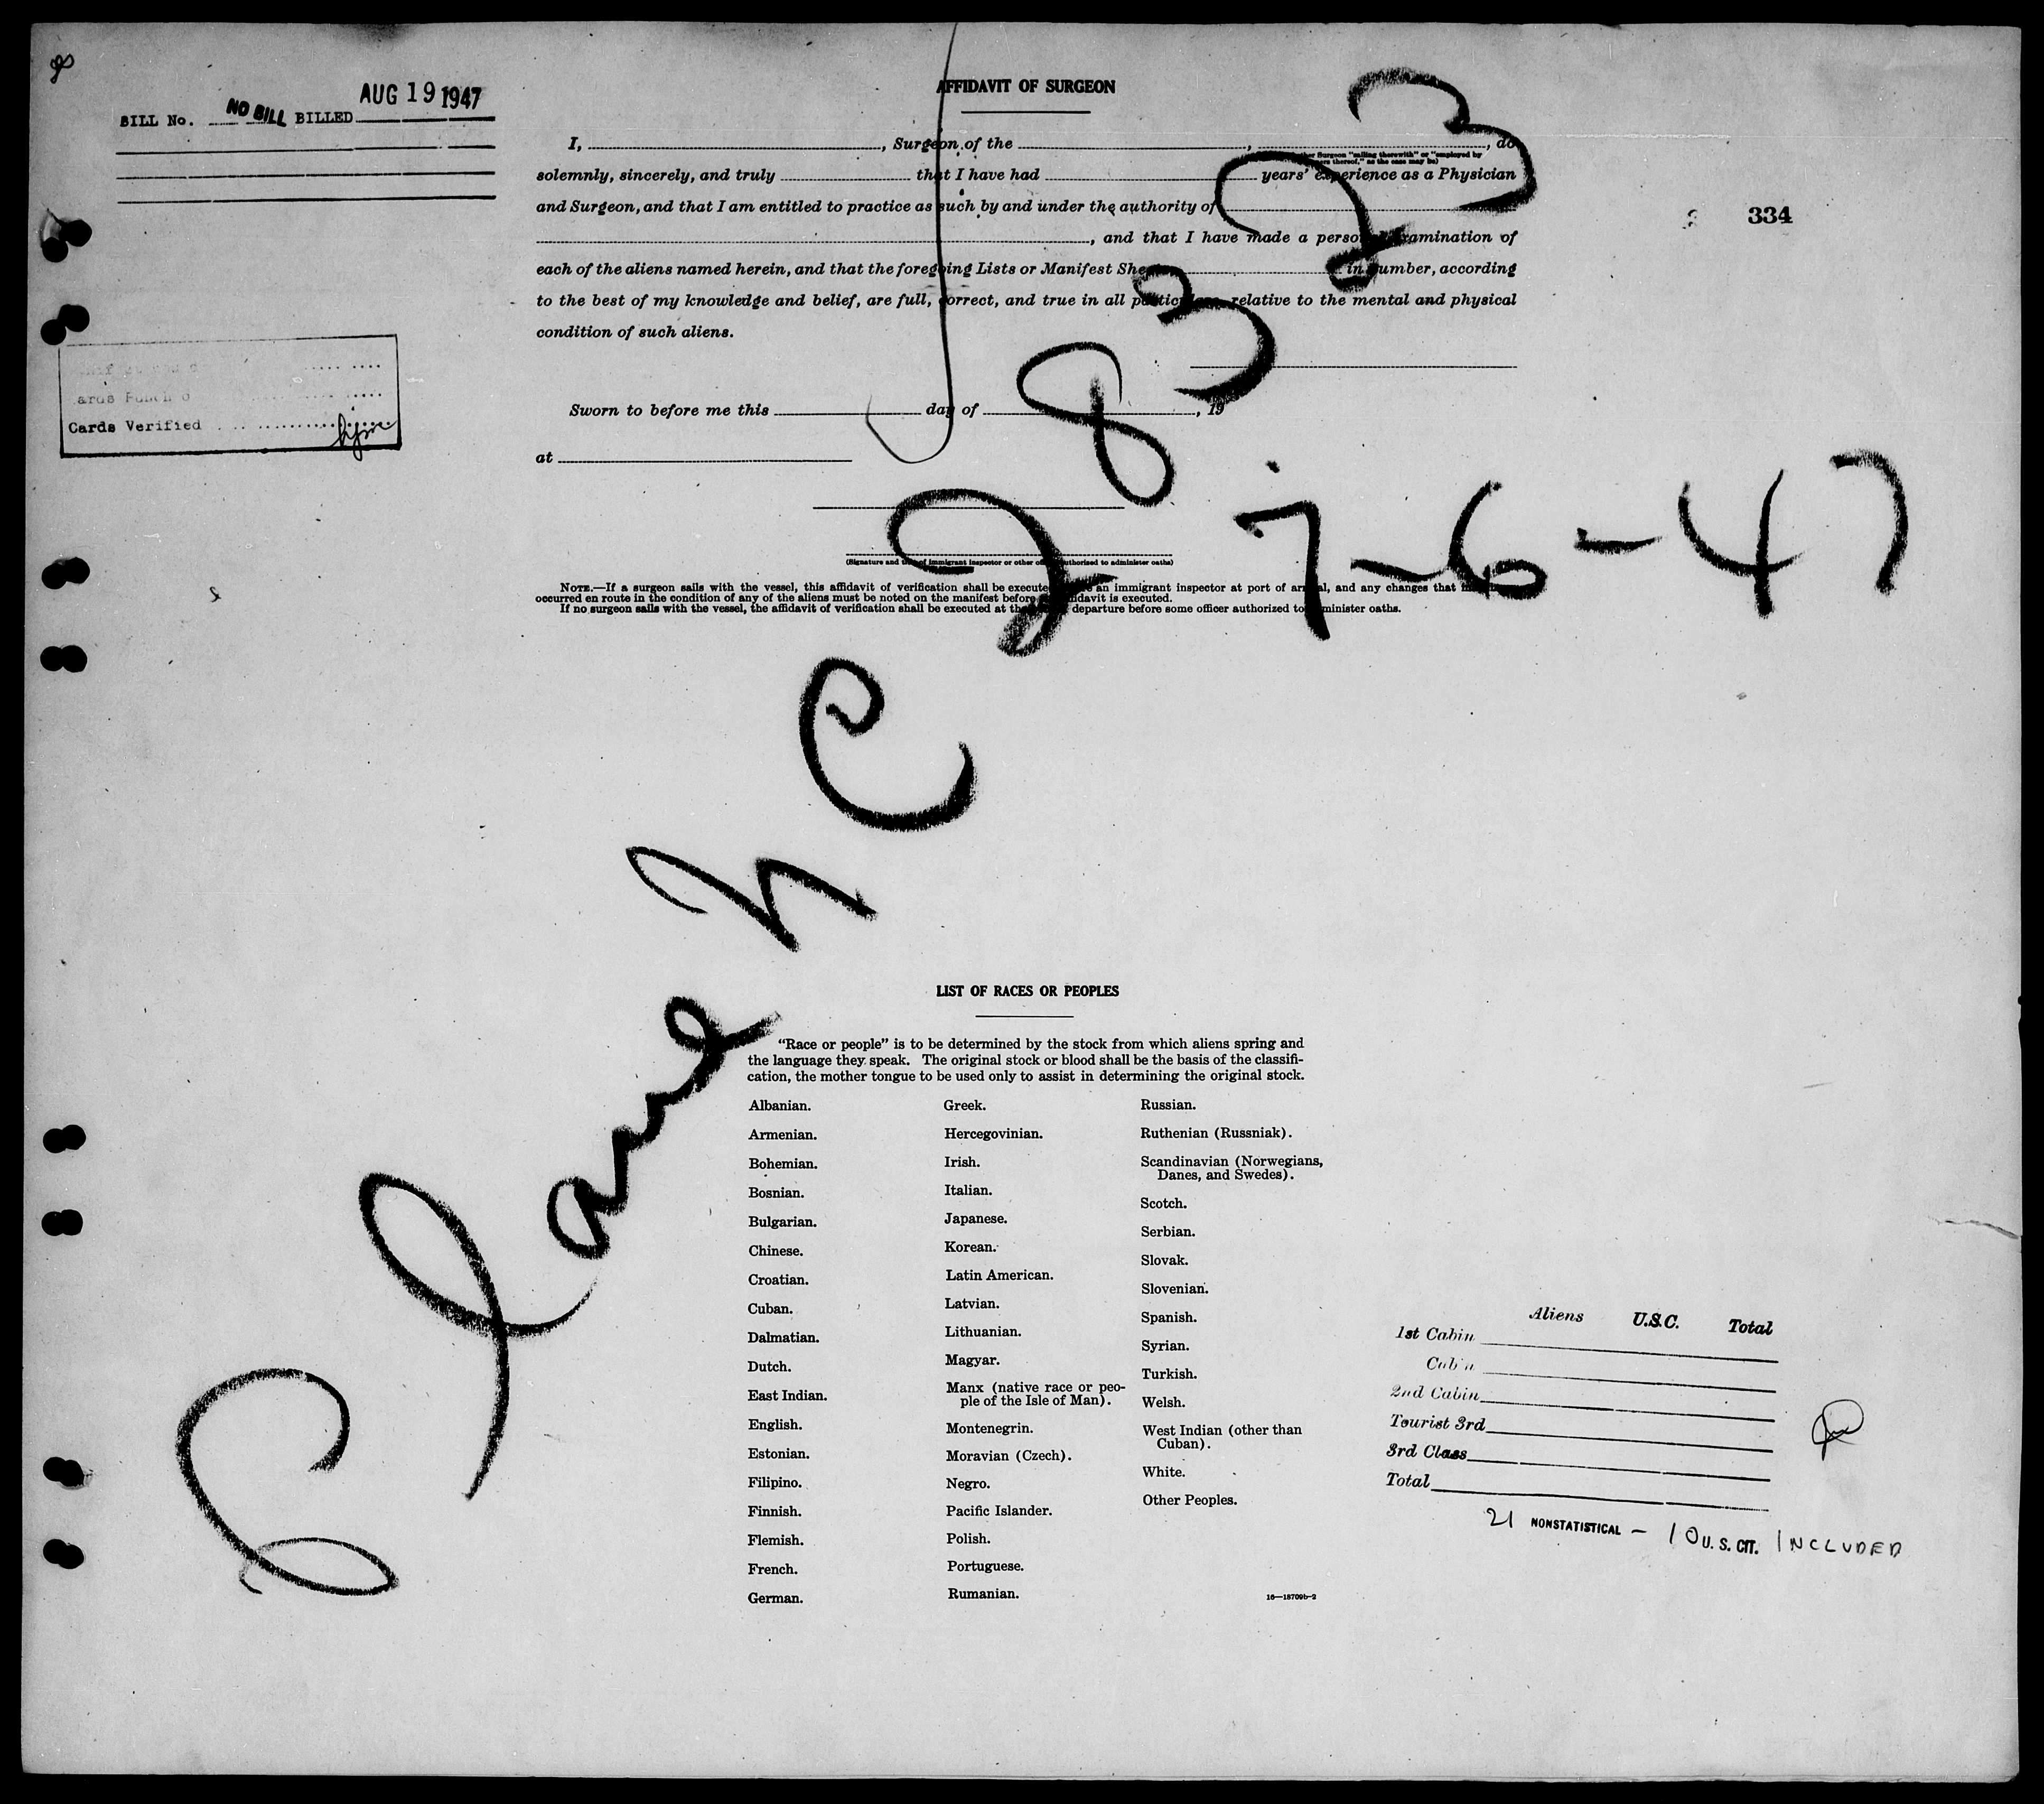 AUG 19 1947
BILL No. NO BILL BILLED
334
AFFIDAVIT OF SURGEON
I, , Surgeon of the , , do
solemnly, sincerely, and truly that I have had years' experience as a Physician
and Surgeon, and that I am entitled to practice as such by and under the authority of
, and that I have made a personal examination of
each of the aliens named herein, and that the foregoing Lists or Manifest Sheets in number, according
to the best of my knowledge and belief, are full, correct, and true in all particulars relative to the mental and physical
condition of such aliens.
Cards Verified
Sworn to before me this day of , 19
at
(Signature and title of immigrant inspector or other officer authorized to administer oaths)
NOTE.—If a surgeon sails with the vessel, this affidavit of verification shall be executed before an immigrant inspector at port of arrival, and any changes that may have
occurred en route in the condition of any of the aliens must be noted on the manifest before affidavit is executed.
If no surgeon sails with the vessel, the affidavit of verification shall be executed at the departure before some officer authorized to administer oaths.
NC 28323
7-6-47
LIST OF RACES OR PEOPLES
"Race or people" is to be determined by the stock from which aliens spring and
the language they speak. The original stock or blood shall be the basis of the classifi-
cation, the mother tongue to be used only to assist in determining the original stock.
Albanian.
Armenian.
Bohemian.
Bosnian.
Bulgarian.
Chinese.
Croatian.
Cuban.
Dalmatian.
Dutch.
East Indian.
English.
Estonian.
Filipino.
Finnish.
Flemish.
French.
German.
Greek.
Hercegovinian.
Irish.
Italian.
Japanese.
Korean.
Latin American.
Latvian.
Lithuanian.
Magyar.
Manx (native race or peo-
ple of the Isle of Man).
Montenegrin.
Moravian (Czech).
Negro.
Pacific Islander.
Polish.
Portuguese.
Rumanian.
Russian.
Ruthenian (Russniak).
Scandinavian (Norwegians,
Danes, and Swedes).
Scotch.
Serbian.
Slovak.
Slovenian.
Spanish.
Syrian.
Turkish.
Welsh.
West Indian (other than
Cuban).
White.
Other Peoples.
16—18709b-2
Aliens U.S.C. Total
1st Cabin
Cabin
2nd Cabin
Tourist 3rd
3rd Class
Total
21 NONSTATISTICAL — 10 U. S. CIT. INCLUDED